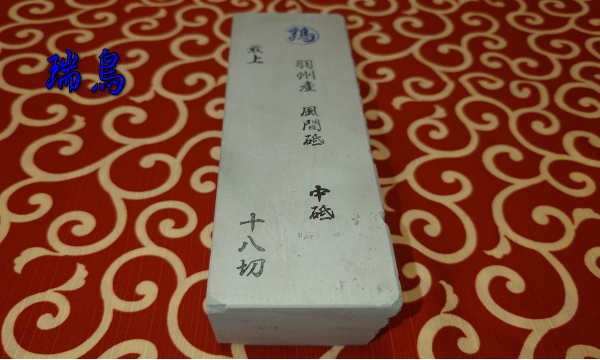 瑞鳥
最上
羽州産 風間砥 中砥
十八切